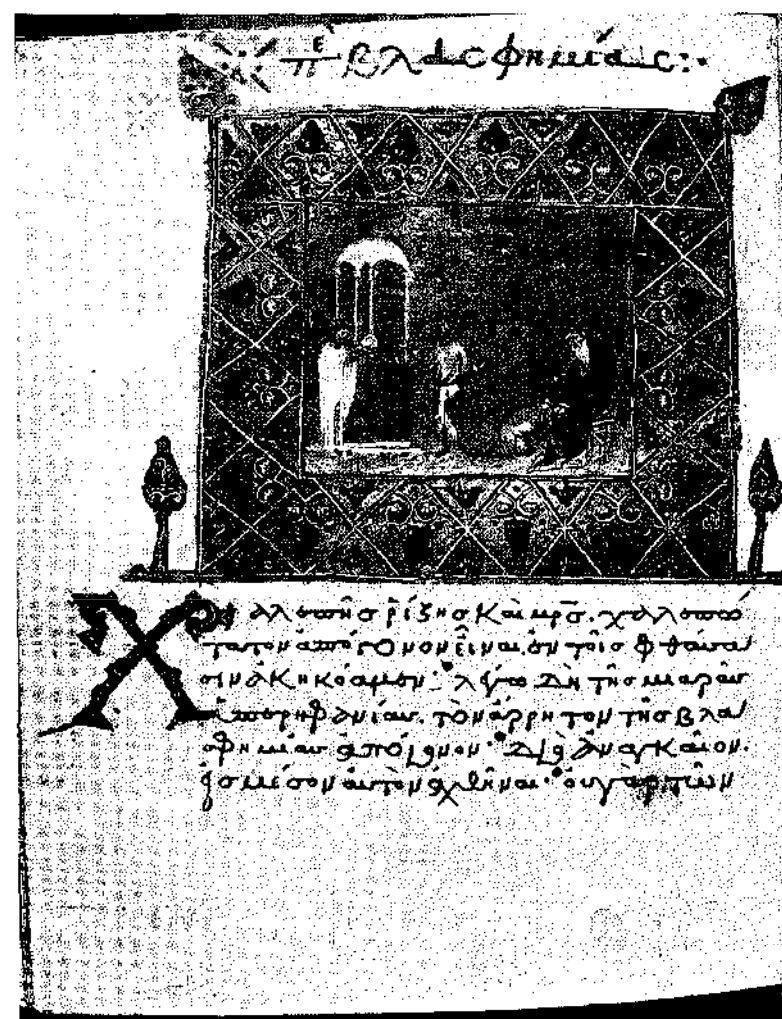 πε βλασφημίας:·
Χαλεπῆς ῥίζης καὶ μρ̅ς. χαλεπω
τατον ἀπόγονον εἶναι. ἐν τοῖς φθάσα
σιν ἀκηκόαμεν· λέγω δὴ τῆς μιαρᾶς
ὑπερηφανίας. τὸν ἄρρητον τῆς βλα
σφημίας ἀπόγονον· διὸ ἀναγκαῖον.
εἰς μέσον αὐτὸν ἀχθῆναι· οὐ γὰρ τῶν